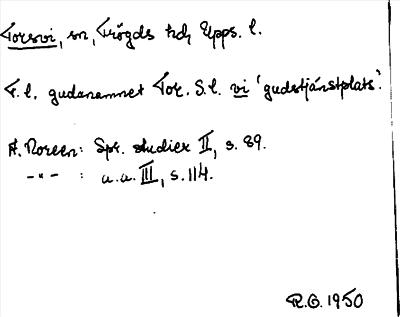 Torsvi, sn, Trögds hd, Upps. l.
F.l. gudanamnet Tor. S.l. vi 'gudstjänstplats'.
A. Noreen: Spr. studier II, s. 89.
-"- : a.a. III, s. 114.
R.O. 1950